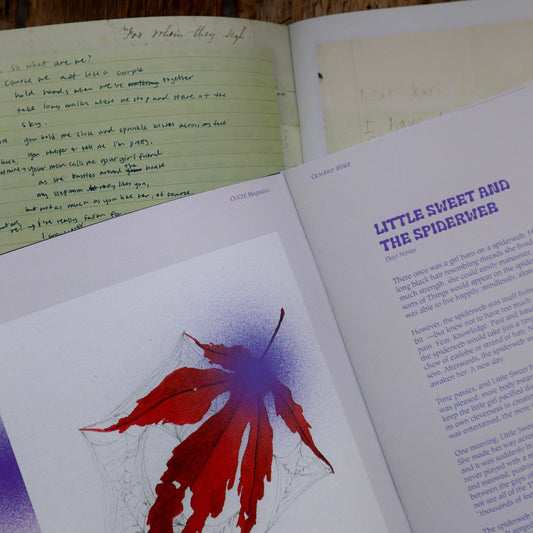 For whom they sigh.
, so what are we?
course we not like a couple
hold hands when we're together
take long walks where we stop and stare at the
sky.
you hold me close and sprinkle kisses across my face
you whisper + tell me I'm pretty.
your mum calls me your girlfriend
as she bustles around the house
my stepmom really likes you,
but not as much as you like her, of course.
I've really fallen for
Dear Kar
I have
OUCH! Magazine
October 2022
LITTLE SWEET AND
THE SPIDERWEB
There once was a girl born on a spiderweb. H
long black hair resembling threads she lived
much strength, she could easily maneuver,
sorts of Things would appear on the spide
was able to live happily, mindlessly, alon
However, the spiderweb was itself livin
bit —but knew not to have too much
pain. Fear. Knowledge. Past and futur
the spiderweb would take just a tin
chew of earlobe or strand of hair. S
sore. Afterwards, the spiderweb w
awaken her: A new day.
Time passes, and Little Sweet
was pleased: more body mean
keep the little girl pacified de
its own cleverness in creatin
was entertained, the more
One morning, Little Swee
She made her way acros
and it was suddenly in
never played with a
and meowed, pushin
between the gaps of
not see all of the T
"thousands of feet
The spiderweb